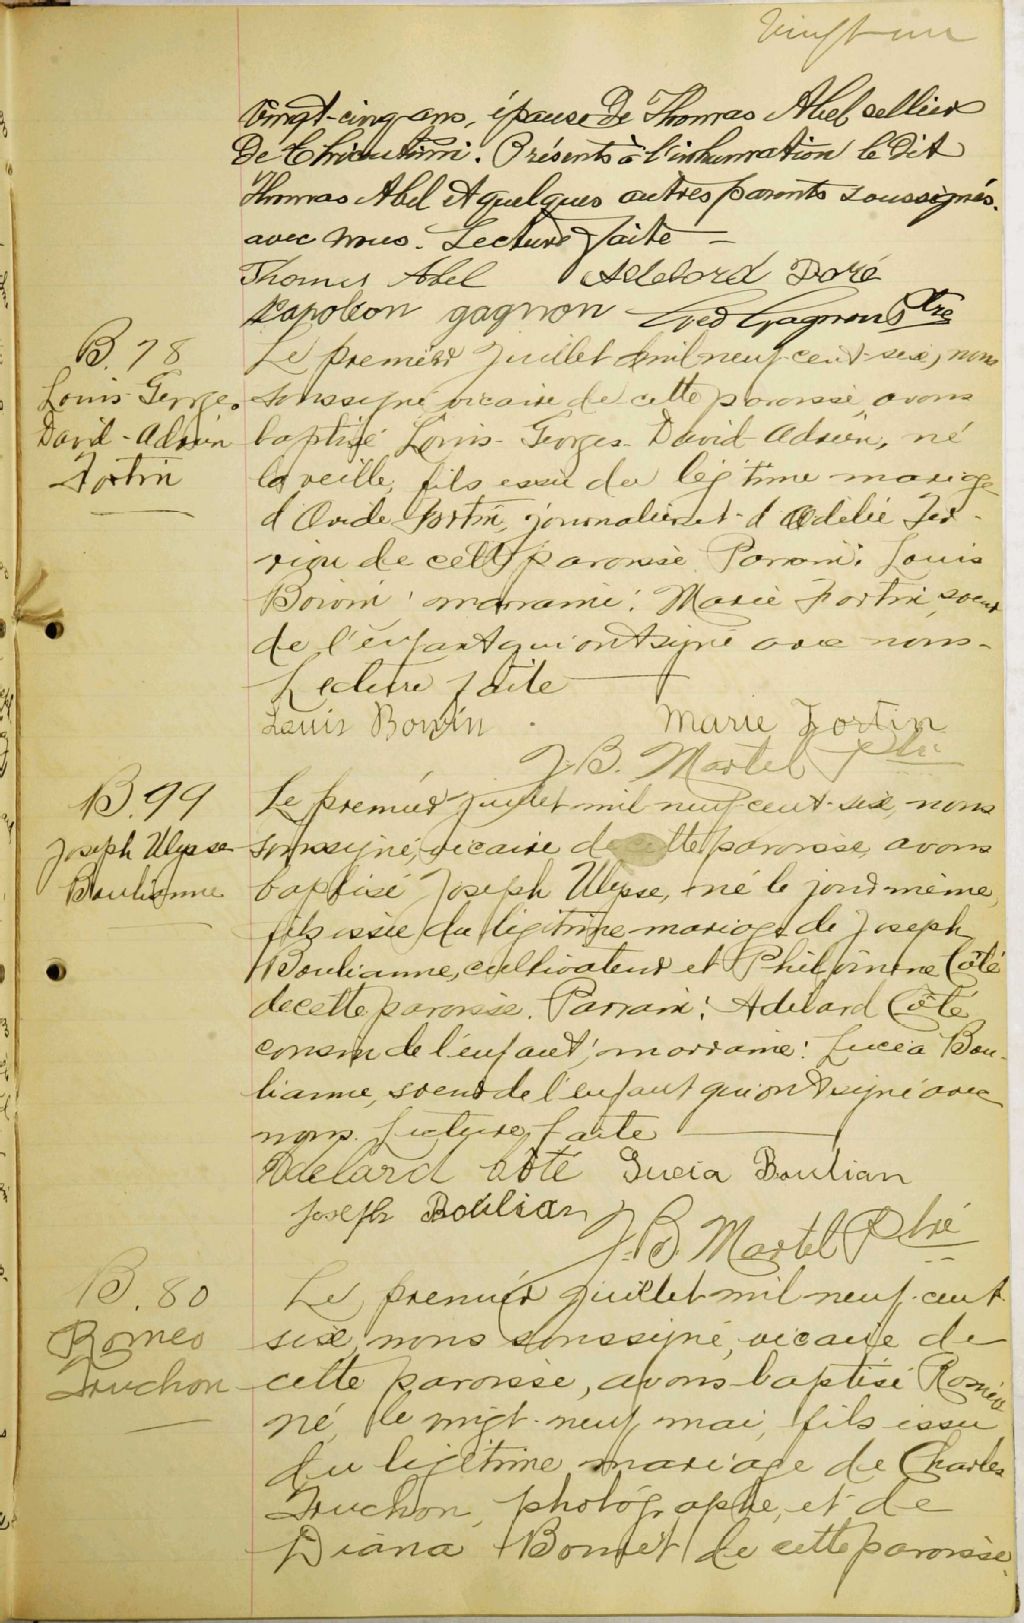 Vingt-un
Vingt-cinq ans, épouse De Thomas Abel sellier
De Chicoutimi. Présents à l'inhumation le Dit
Thomas Abel et quelques autres parents soussignés
avec nous. Lecture faite —
Thomas Abel Adelard Doré
Napoleon gagnon Gagnon Ptre
B. 78
Louis-Georges
David-Adrien
Fortin
Le premier Juillet mil neuf-cent-six, nous
soussigné vicaire de cette paroisse avons
baptisé Louis-Georges-David-Adrien, né
la veille, fils issu du légitime mariage
d'Ovide Fortin, journalier et d'Odélie
de cette paroisse. Parrain: Louis
Boivin; marraine: Marie Fortin soeur
de l'enfant qui ont signé avec nous.
Lecture faite —
Louis Boivin Marie Fortin
J.B. Martel Ptre
B. 79
Joseph Ulysse
Boulianne
Le premier juillet mil neuf cent-six, nous
soussigné, vicaire de cette paroisse, avons
baptisé Joseph Ulysse, né le jour même,
fils issu du légitime mariage de Joseph
Boulianne, cultivateur et Philomène Côté
de cette paroisse. Parrain: Adélard Côté
cousin de l'enfant; marraine: Lucia Bou-
lianne, soeur de l'enfant qui ont signé avec
nous. Lecture faite —
Adelard Côté Lucia Boulian
Joseph Boulian
J.B. Martel Ptre
B. 80
Romeo
Truchon
Le premier juillet mil-neuf-cent-
six, nous soussigné, vicaire de
cette paroisse, avons baptisé Roméo
né, le vingt-neuf mai, fils issu
du légitime mariage de Charles
Truchon, photographe, et de
Diana de cette paroisse.